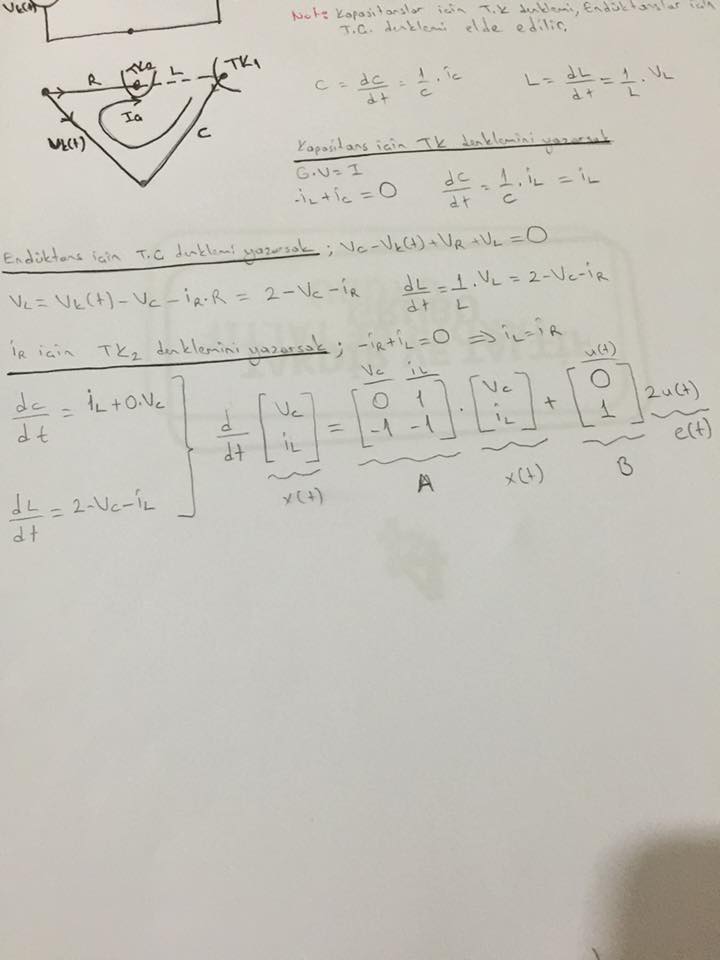 Vk(t)
Not: Kapasitanslar için T.K denklemi, Endüktanslar için
T.Ç. denklemi elde edilir.
R L TK1
TK2
Ia
Vk(t) C
C = dc/dt = 1/C . ic L = dL/dt = 1/L . VL
Kapasitans için TK denklemini yazarsak
G.V = I
-iL + ic = 0 dc/dt = 1/C . iL = iL
Endüktans için T.Ç denklemi yazarsak ; Vc - Vk(t) + VR + VL = 0
VL = Vk(t) - Vc - iR.R = 2 - Vc - iR dL/dt = 1/L . VL = 2 - Vc - iR
iR için TK2 denklemini yazarsak ; -iR + iL = 0 ⇒ iL = iR
dc/dt = iL + 0.Vc
Vc iL u(t)
d/dt [Vc iL] = [0 1 -1 -1] . [Vc iL] + [0 1] 2u(t)
x(t) A x(t) B e(t)
dL/dt = 2 - Vc - iL